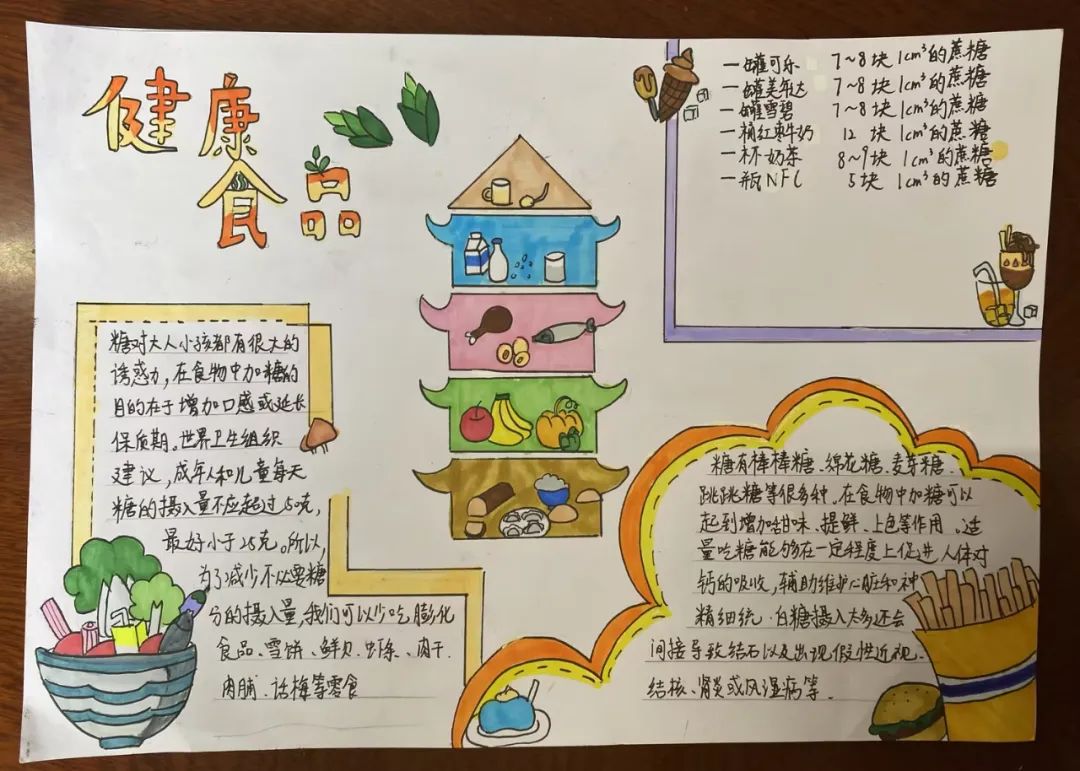 健康
食品
一罐可乐 7~8块 1cm³的蔗糖
一罐美年达 7~8块 1cm³的蔗糖
一罐雪碧 7~8块 1cm³的蔗糖
一桶红枣牛奶 12块 1cm³的蔗糖
一杯奶茶 8~9块 1cm³的蔗糖
一瓶NFC 5块 1cm³的蔗糖
糖对大人小孩都有很大的
诱惑力,在食物中加糖的
目的在于增加口感或延长
保质期。世界卫生组织
建议,成年人和儿童每天
糖的摄入量不应超过50克,
最好小于25克。所以,
为了减少不必要糖
分的摄入量,我们可以少吃膨化
食品、雪饼、鲜贝、虾条、肉干、
肉脯、话梅等零食
糖有棒棒糖、绵花糖、麦芽糖、
跳跳糖等很多种。在食物中加糖可以
起到增加甜味、提鲜、上色等作用。适
量吃糖能够在一定程度上促进人体对
钙的吸收,辅助维护心脏和神
精细统。白糖摄入太多还会
间接导致结石以及出现假性近视、
结核、肾炎或风湿病等。